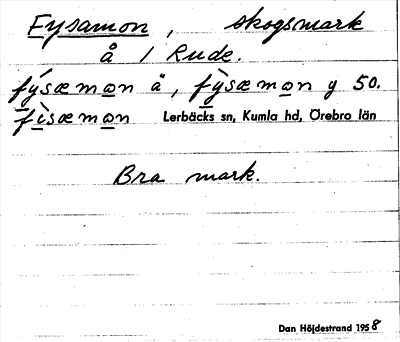 Fysamon, skogsmark
å 1 Rude.
fýsæmon ä, fỳsæmon y 50.
fìsæmon Lerbäcks sn, Kumla hd, Örebro län
Bra mark.
Dan Höjdestrand 1958